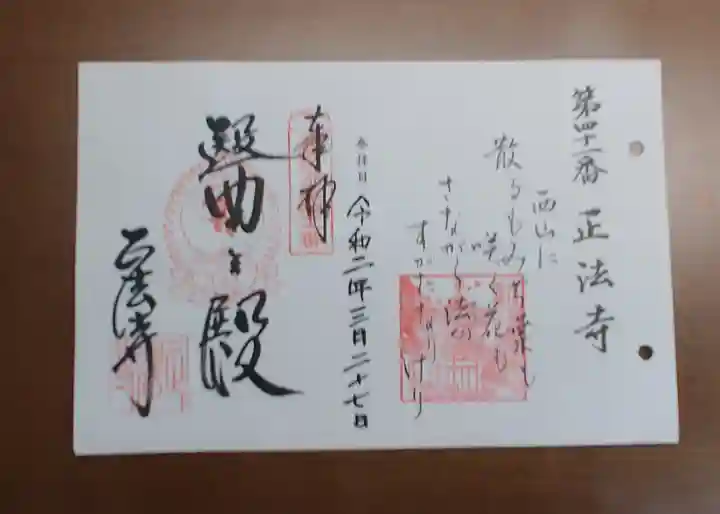 第四十一番 正法寺
西山に
散るもみぢ葉も
咲く花も
さながら法の
すがたなりけり
参拝日 令和二年三月二十七日
奉拝
殿
正法寺